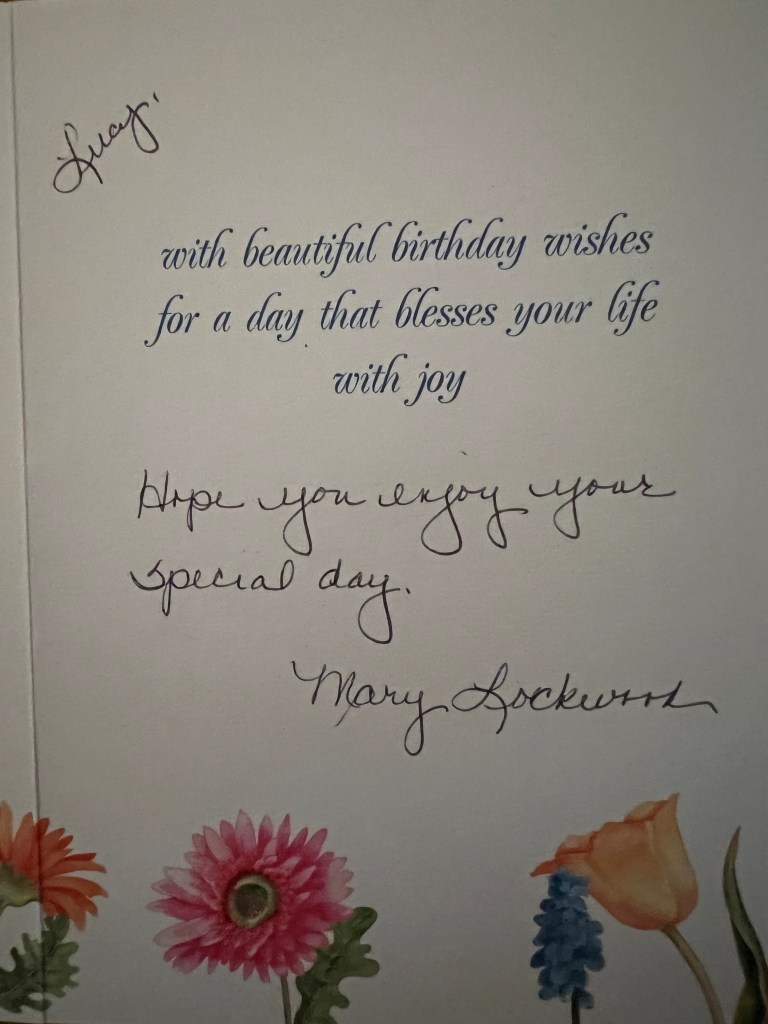 Lucy,
with beautiful birthday wishes
for a day that blesses your life
with joy
Hope you enjoy your
special day.
Mary Lockwood